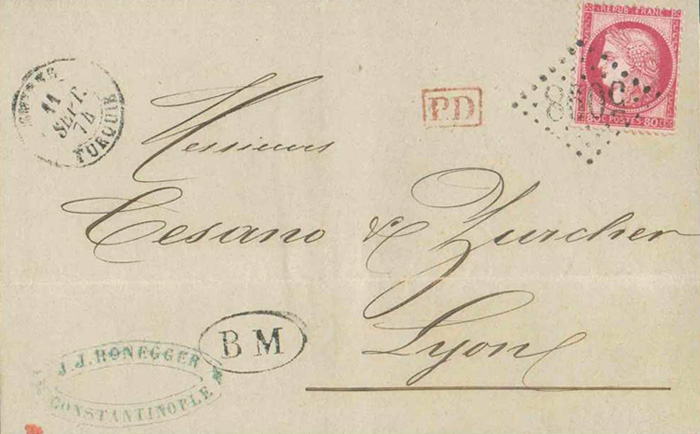 REPUB. FRANC.
80 C. POSTES 80 C.
11
SEPT.
74
TURQUIE
P.D
Messieurs
Cesano & Zurcher
Lyon
B M
J. J. HONEGGER
CONSTANTINOPLE